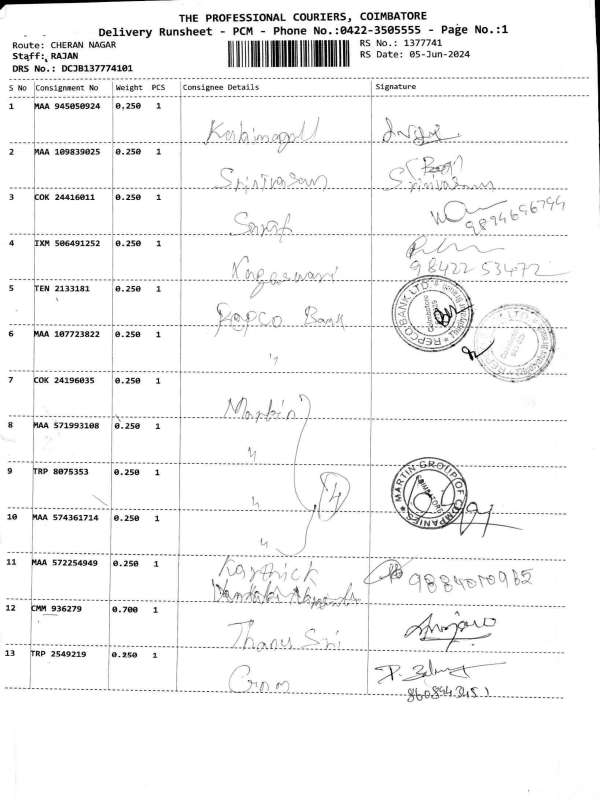 THE PROFESSIONAL COURIERS, COIMBATORE
Delivery Runsheet - PCM - Phone No.:0422-3505555 - Page No.:1
Route: CHERAN NAGAR RS No.: 1377741
Staff: RAJAN RS Date: 05-Jun-2024
DRS No.: DCJB137774101
S No Consignment No Weight PCS Consignee Details Signature
1 MAA 945050924 0.250 1
2 MAA 109839025 0.250 1 Srinivasan Srinivasan
3 COK 24416011 0.250 1 Saraf
4 IXM 506491252 0.250 1 Nageswari
98422 53472
5 TEN 2133181 0.250 1 Repco Bank REPCO BANK LTD. Coimbatore
6 MAA 107723822 0.250 1 "
7 COK 24196035 0.250 1 Martin
8 MAA 571993108 0.250 1 "
9 TRP 8075353 0.250 1 " MARTIN GROUP OF COMPANIES
10 MAA 574361714 0.250 1 "
11 MAA 572254949 0.250 1 Karthick
12 CMM 936279 0.700 1 Thanu Sri
13 TRP 2549219 0.250 1